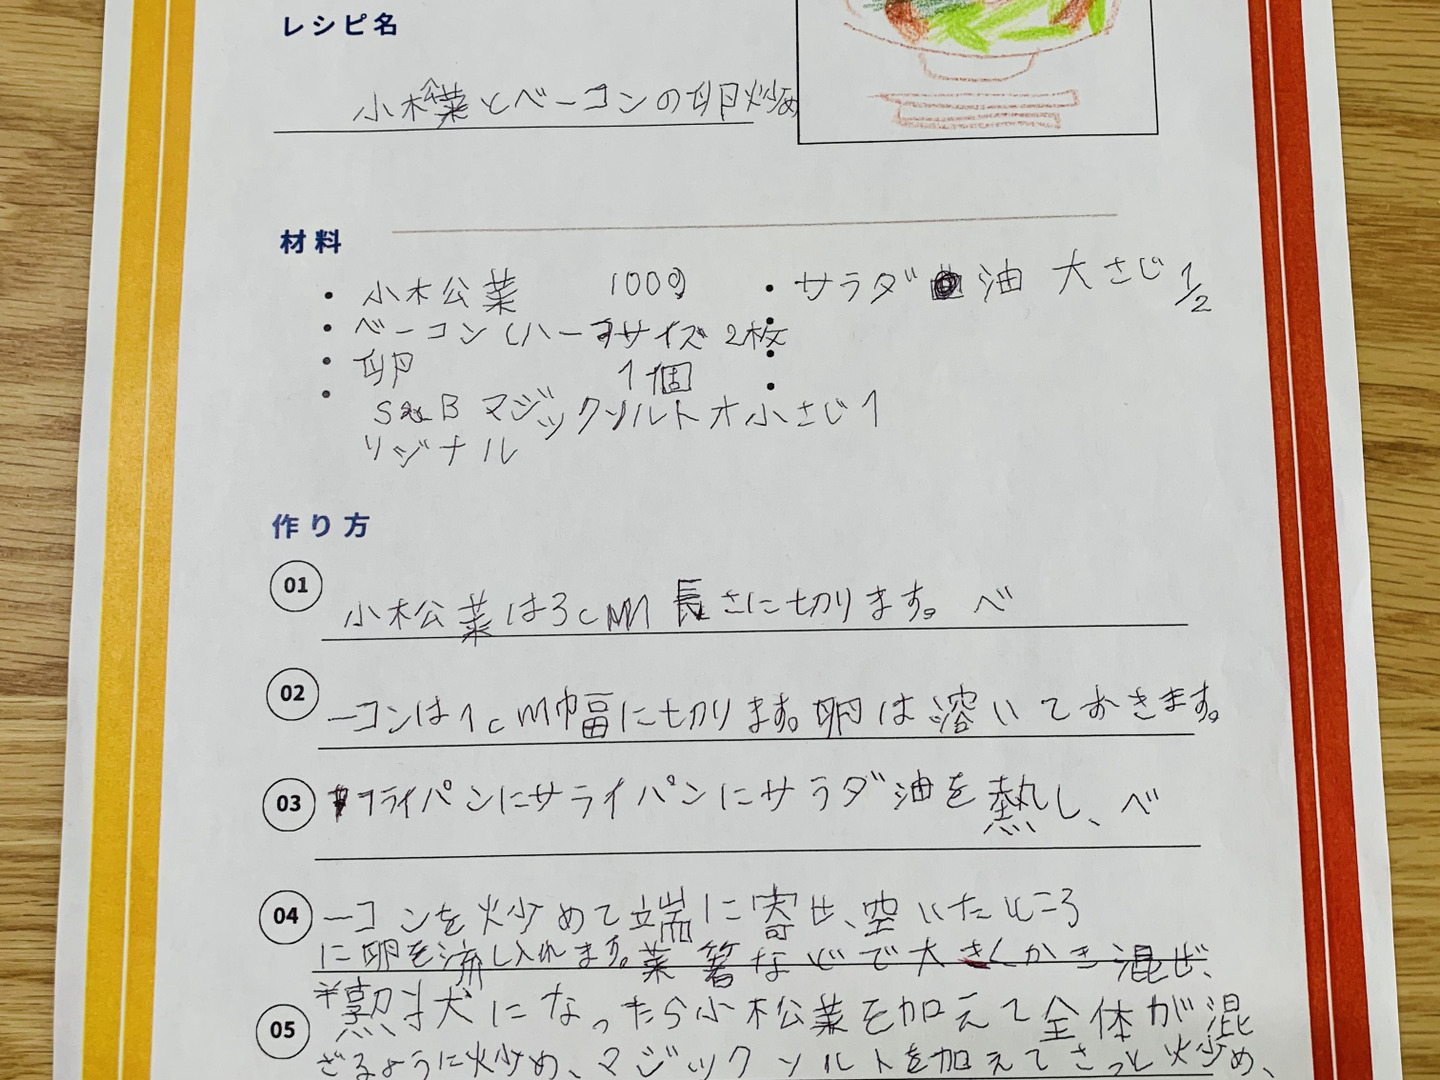 レシピ名
小松菜とベーコンの卵炒め
材料
• 小松菜 100g
• ベーコン(ハーフサイズ 2枚
• 卵 1個
• S&B マジックソルトオ 小さじ1
リジナル
• サラダ 油 大さじ1/2
作り方
01 小松菜は3cm 長さに切ります。 ベ
02 ーコンは1cm幅に切ります。卵は溶いておきます。
03 フライパンにサライパンにサラダ油を熱し、ベ
04 ーコンを炒めて端に寄せ、空いたところ
に卵を流し入れます。菜箸などで大きくかき混ぜ、
半熟状になったら小松菜を加えて全体が混
05
ざるように炒め、マジックソルトを加えてさっと炒め、